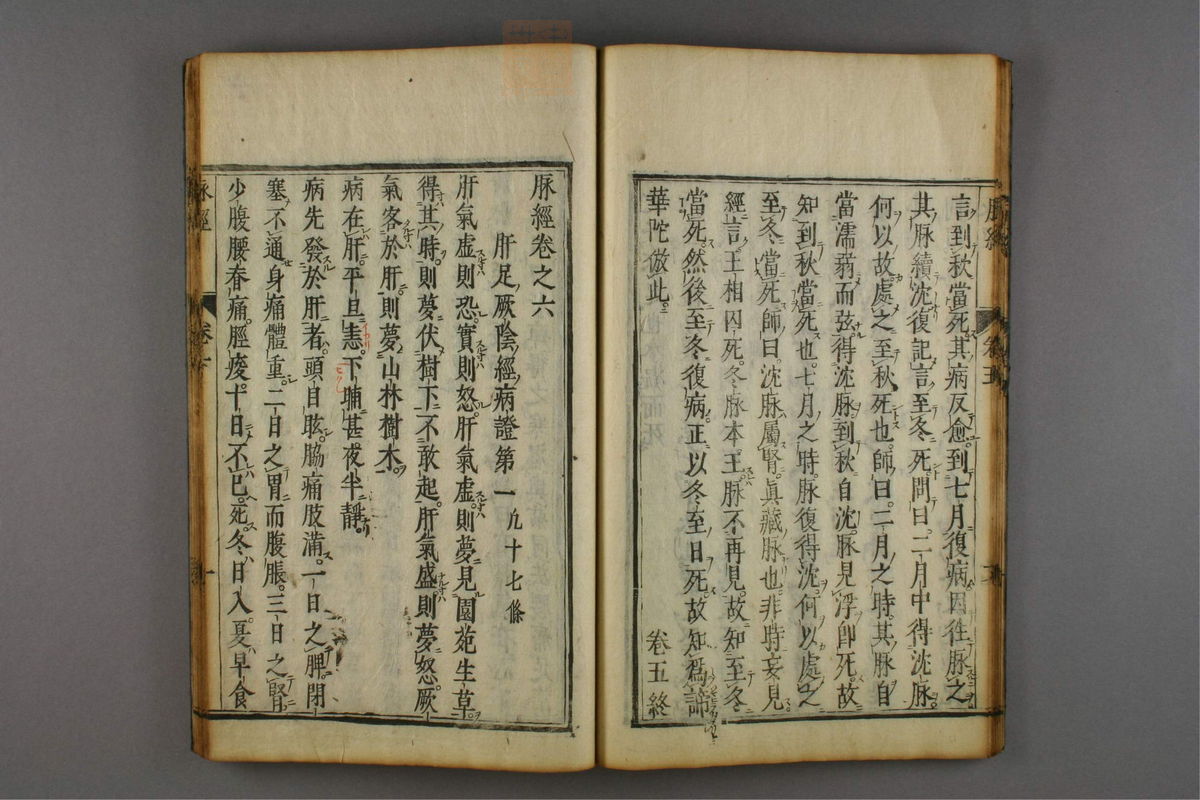 言到秋當死其病反愈到七月復病因往脉之
其脉續沈復記言至冬死問曰二月中得沈脉
何以故處之至秋死也師曰二月之時其脉自
當濡弱而弦得沈脉到秋自沈脉見浮即死故
知到秋當死也七月之時脉復得沈何以處之
至冬當死師曰沈脉屬腎眞藏脉也非時妄見
經言王相囚死冬脉本王脉不再見故知至冬
當死然後至冬復病正以冬至日死故知爲諦
華陀倣此 卷五終
脉經卷之六
肝足厥陰經病證第一 九十七條
肝氣虚則恐實則怒肝氣虚則夢見園苑生草
得其時則夢伏樹下不敢起肝氣盛則夢怒厥
氣客於肝則夢山林樹木
病在肝平旦恚下晡甚夜半靜
病先發於肝者頭目眩脇痛肢滿一日之脾閉
塞不通身痛體重二日之胃而腹脹三日之腎
少腹腰脊痛脛痠十日不已死冬日入夏早食
脉經 卷六